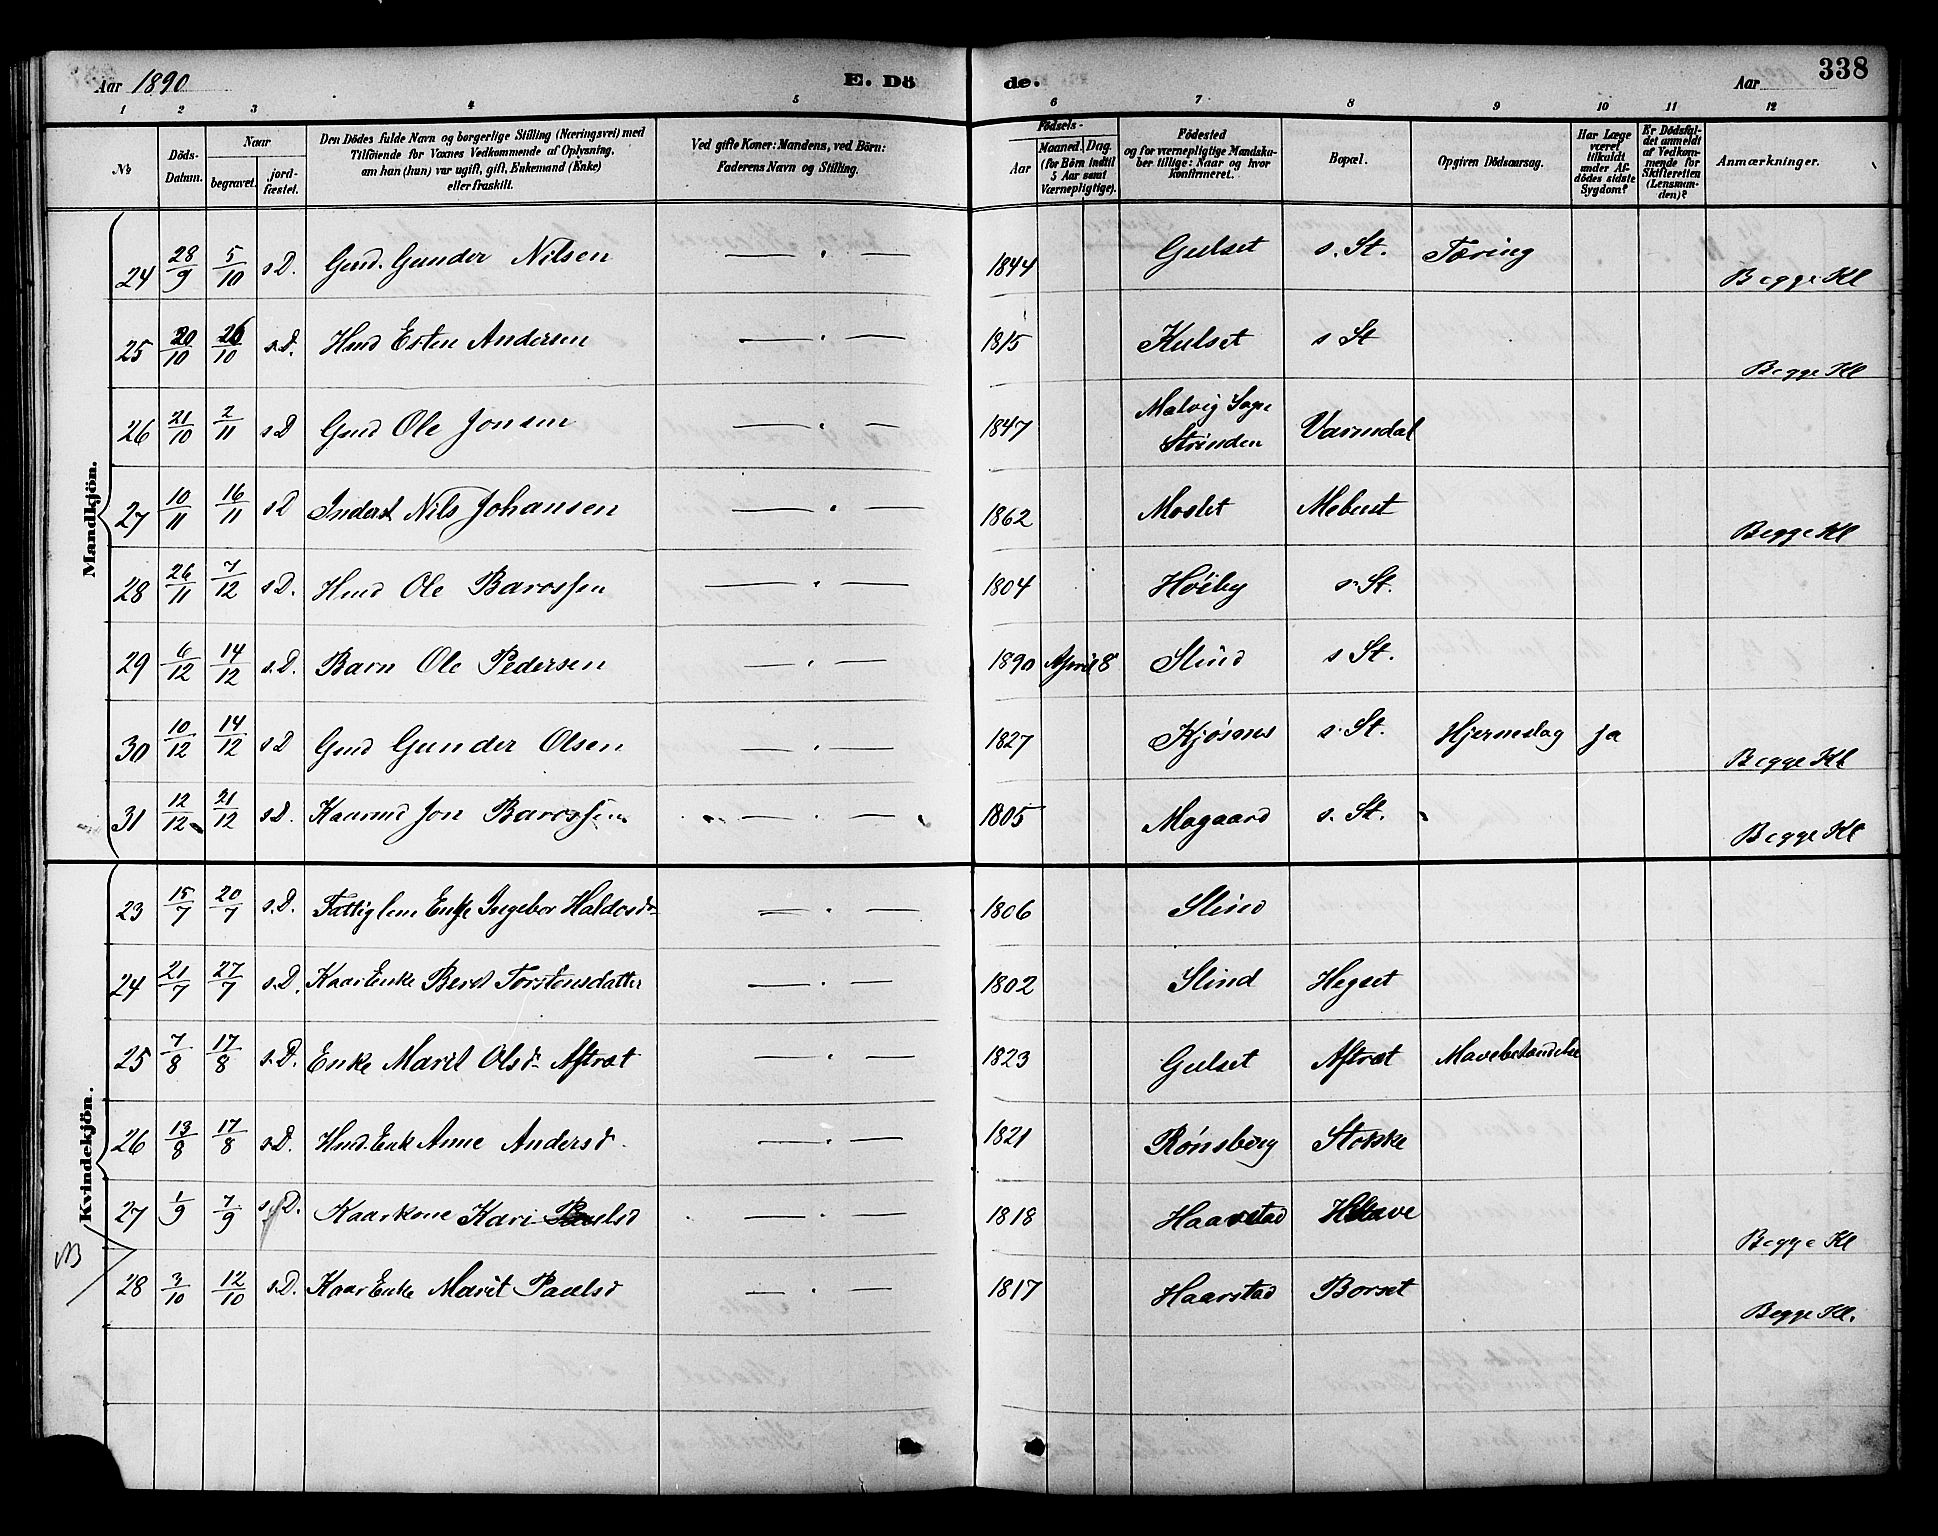 Aar 1890
E. Dö
de.
Aar
338
1 2 3 4 5 6 7 8 9 10 11 12
No
Döds-Datum.
Naar
begravet.
jord-fæstet.
Den Dödes fulde Navn og borgerlige Stilling (Næringsvei) med
Tilföiende for Voxnes Vedkommende af Oplysning,
om han (hun) var ugift, gift, Enkemand (Enke)
eller fraskilt.
Ved gifte Koner: Mandens, ved Börn:
Faderens Navn og Stilling.
Födsels-
Aar
Maaned. Dag.
(for Börn indtil
5 Aar samt
Værnepligtige).
Födested
og for værnepligtige Mandska-
ber tillige: Naar og hvor
konfirmeret.
Bopæl.
Opgiven Dödsaarsag.
Har Læge
været
tilkaldt
under Af-
dödes sidste
Sygdom?
Er Dödsfal-
det anmeldt
af Vedkom-
mende for
Skifteretten
(Lensman-
den)?
Anmærkninger.
Mandkjön.
24 28/9 5/10 s.D. Gmd. Gunder Nilsen — " — 1844 Gulset s. St. Tæring Begge Kl
25 20/10 26/10 s.D. Hmd Esten Andersen — " — 1815 Kulset s St Begge Kl
26 21/10 2/11 s D Gmd Ole Jonsen — " — 1847 Malvig Sogn Strinden Varmdal
27 10/11 16/11 s D Inderst Nils Johansen — " — 1862 Moslet Mebust Begge Kl
28 26/11 7/12 s D. Hmd Ole Barosſen — " — 1804 Høiby s. St.
29 6/12 14/12 s.D. Barn Ole Pedersen — " — 1890 April 8 Slind s St.
30 10/12 14/12 s D Gmd Gunder Olsen — " — 1827 Kjøsnes s. St. Hjerneslag ja Begge Kl
31 12/12 21/12 s D. Kaarmd Jon Barosſen — " — 1805 Mogaard s. St. Begge Kl
Kvindekjön.
23 15/7 20/7 s.D. Fattiglem Enke Ingebor Haldosd — " — 1806 Slind
24 21/7 27/7 s.D. Kaar Enke Berit Torstensdatter — " — 1802 Slind Hegset
25 7/8 17/8 s.D. Enke Marit Olsd Aftret — " — 1823 Gulset Aftret
26 13/8 17/8 s.D. Hmd. Enk Anne Andersd. — " — 1821 Rønsberg Stokke
27 1/9 7/9 s.D. Kaarkone Kari Paulsd — " — 1818 Haarstad Begge Kl
NB
28 3/10 12/10 s.D. Kaar Enke Marit Paulsd — " — 1817 Haarstad Borset Begge Kl.